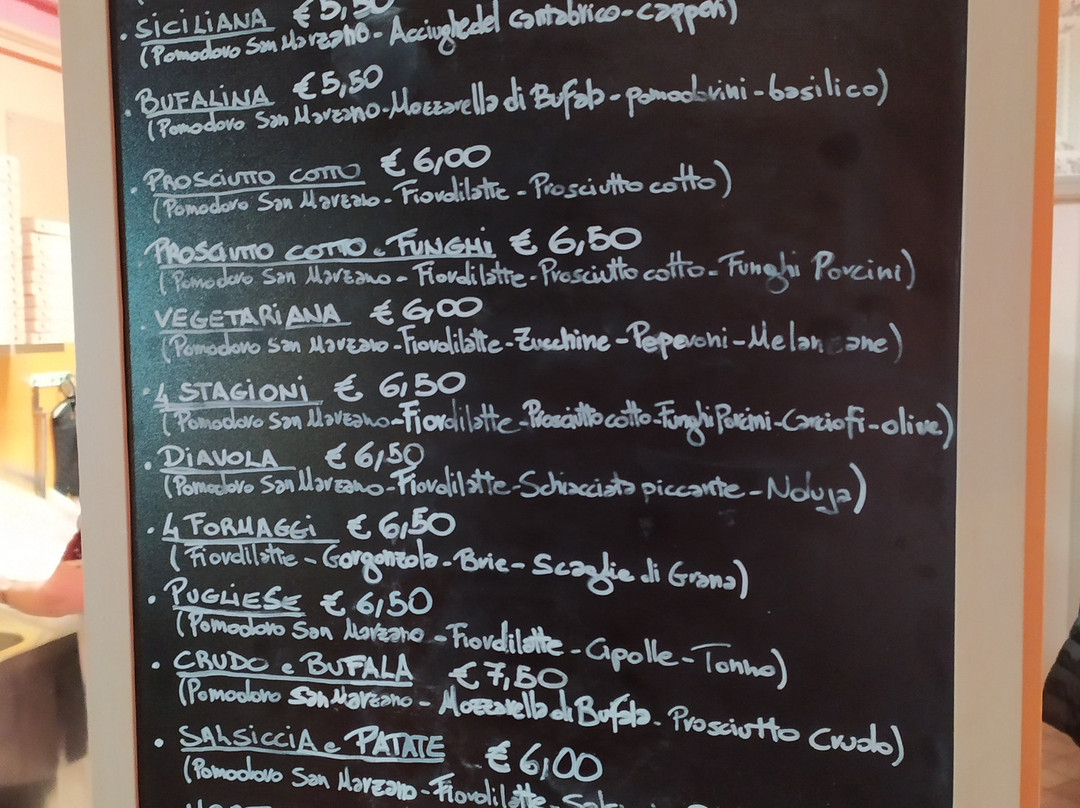 SICILIANA €5,50
(Pomodoro San Marzano - Acciughe del Cantabrico - capperi)
BUFALINA €5,50
(Pomodoro San Marzano - Mozzarella di Bufala - pomodorini - basilico)
PROSCIUTTO COTTO € 6,00
(Pomodoro San Marzano - Fiordilatte - Prosciutto cotto)
PROSCIUTTO COTTO e FUNGHI € 6,50
(Pomodoro San Marzano - Fiordilatte - Prosciutto cotto - Funghi Porcini)
VEGETARIANA € 6,00
(Pomodoro San Marzano - Fiordilatte - Zucchine - Peperoni - Melanzane)
4 STAGIONI € 6,50
(Pomodoro San Marzano - Fiordilatte - Prosciutto cotto - Funghi Porcini - Carciofi - olive)
DIAVOLA € 6,50
(Pomodoro San Marzano - Fiordilatte - Schiacciata piccante - Noduja)
4 FORMAGGI € 6,50
(Fiordilatte - Gorgonzola - Brie - Scaglie di Grana)
PUGLIESE € 6,50
(Pomodoro San Marzano - Fiordilatte - Cipolle - Tonno)
CRUDO e BUFALA € 7,50
(Pomodoro San Marzano - Mozzarella di Bufala - Prosciutto Crudo)
SALSICCIA e PATATE € 6,00
(Pomodoro San Marzano - Fiordilatte